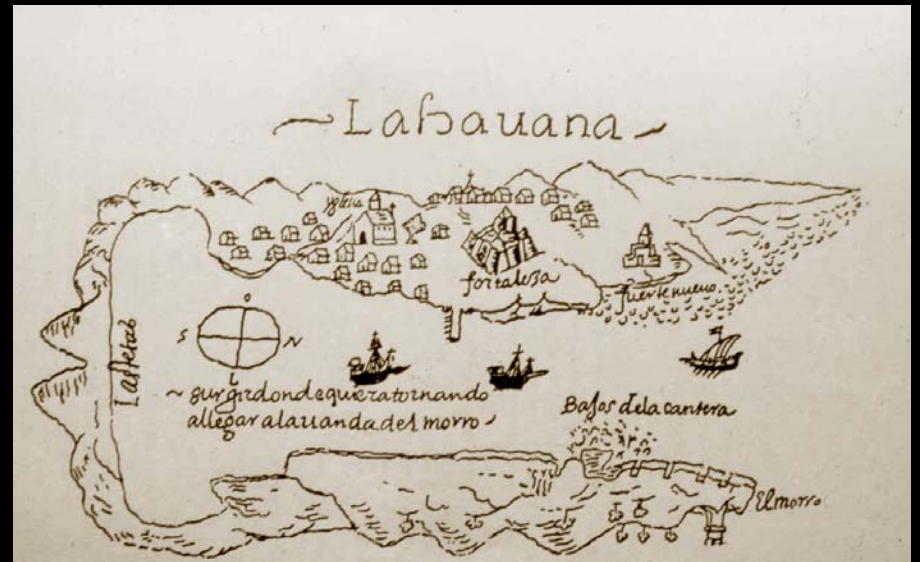 ~ Lahauana ~
yglesia
fortaleza
fuerte nueuo
o
S N
L
~ surgir donde quiera tornando
allegar alauanda del morro ~
Bajos dela cantera
El morro